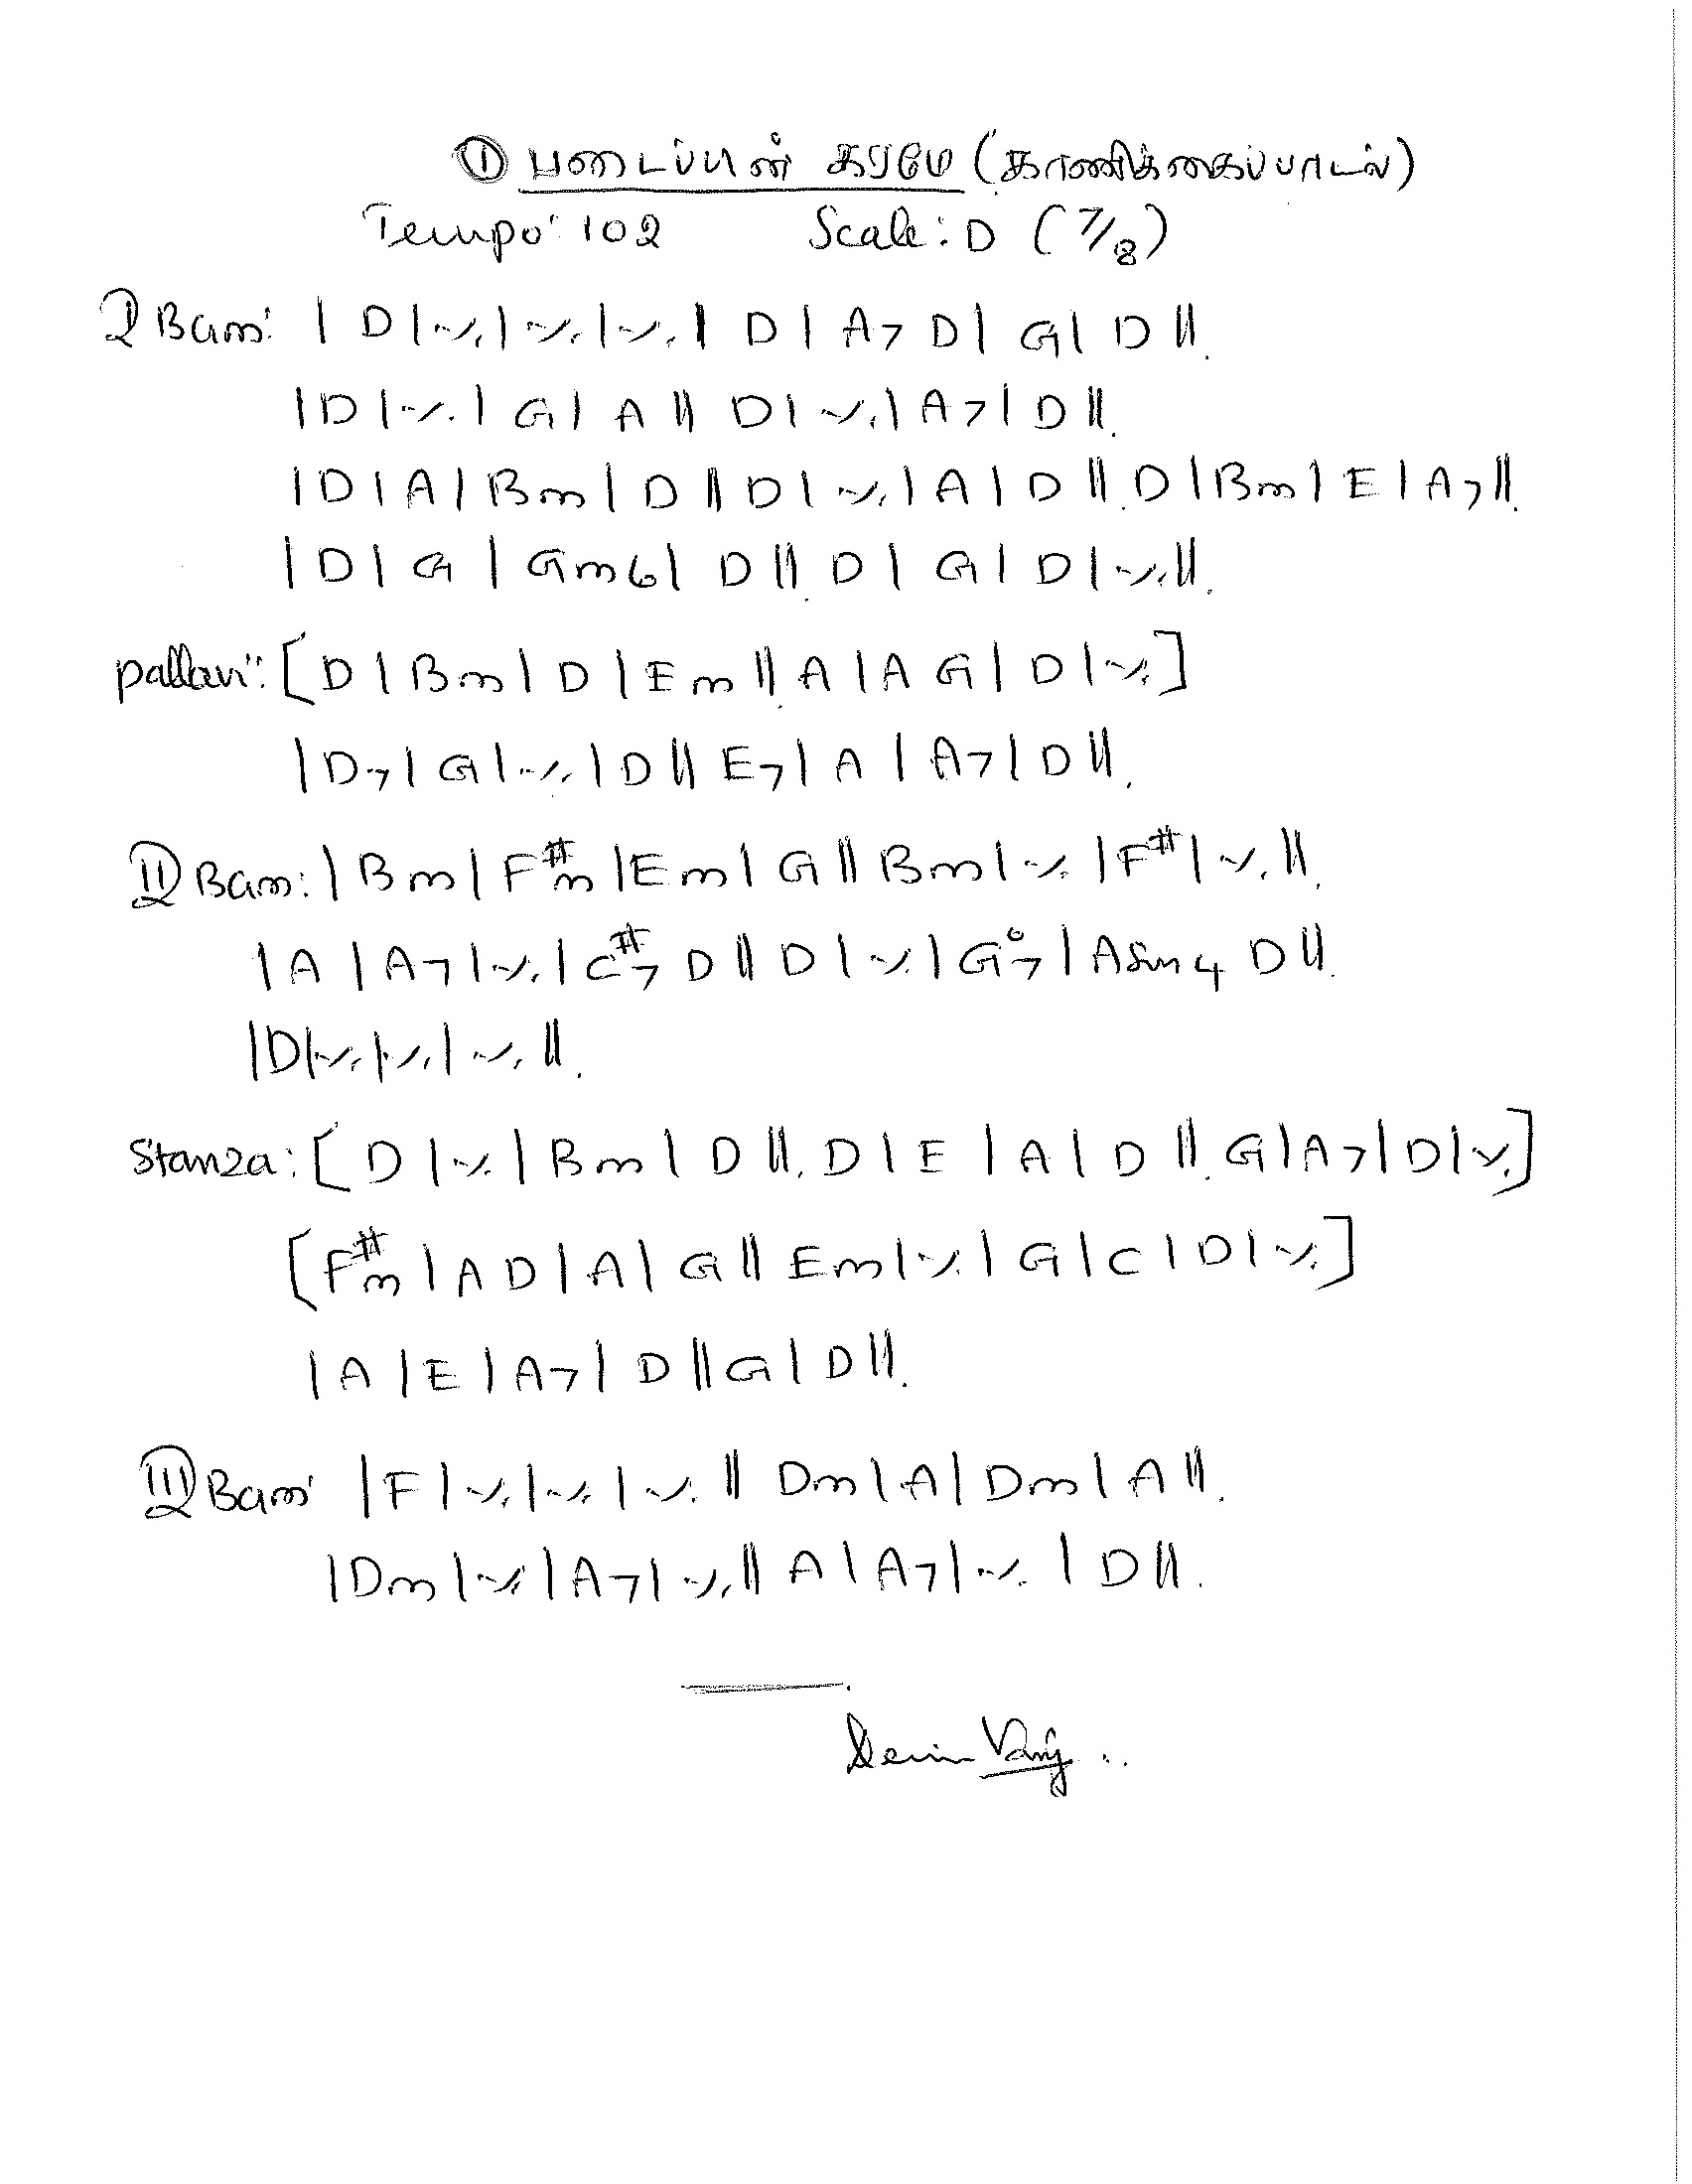 ① படைப்பின் கரமே (காணிக்கைப்பாடல்)
Tempo: 102 Scale: D (7/8)
I Bars: | D | ٪ | ٪ | ٪ || D | A7 D | G | D ||.
| D | ٪ | G | A || D | ٪ | A7 | D ||.
| D | A | Bm | D || D | ٪ | A | D ||. D | Bm | E | A7 ||.
| D | G | Gm6 | D ||. D | G | D | ٪ ||.
Pallavi: [ D | Bm | D | Em ||. A | A G | D | ٪ ]
| D7 | G | ٪ | D || E7 | A | A7 | D ||.
II Bars: | Bm | F#m | Em | G || Bm | ٪ | F# | ٪ ||.
| A | A7 | ٪ | C#7 D || D | ٪ | G°7 | Asus4 D ||.
| D | ٪ | ٪ | ٪ ||.
Stanza: [ D | ٪ | Bm | D ||. D | E | A | D ||. G | A7 | D | ٪ ]
[ F#m | A D | A | G || Em | ٪ | G | C | D | ٪ ]
| A | E | A7 | D || G | D ||.
III Bars | F | ٪ | ٪ | ٪ || Dm | A | Dm | A ||.
| Dm | ٪ | A7 | ٪ || A | A7 | ٪ | D ||.